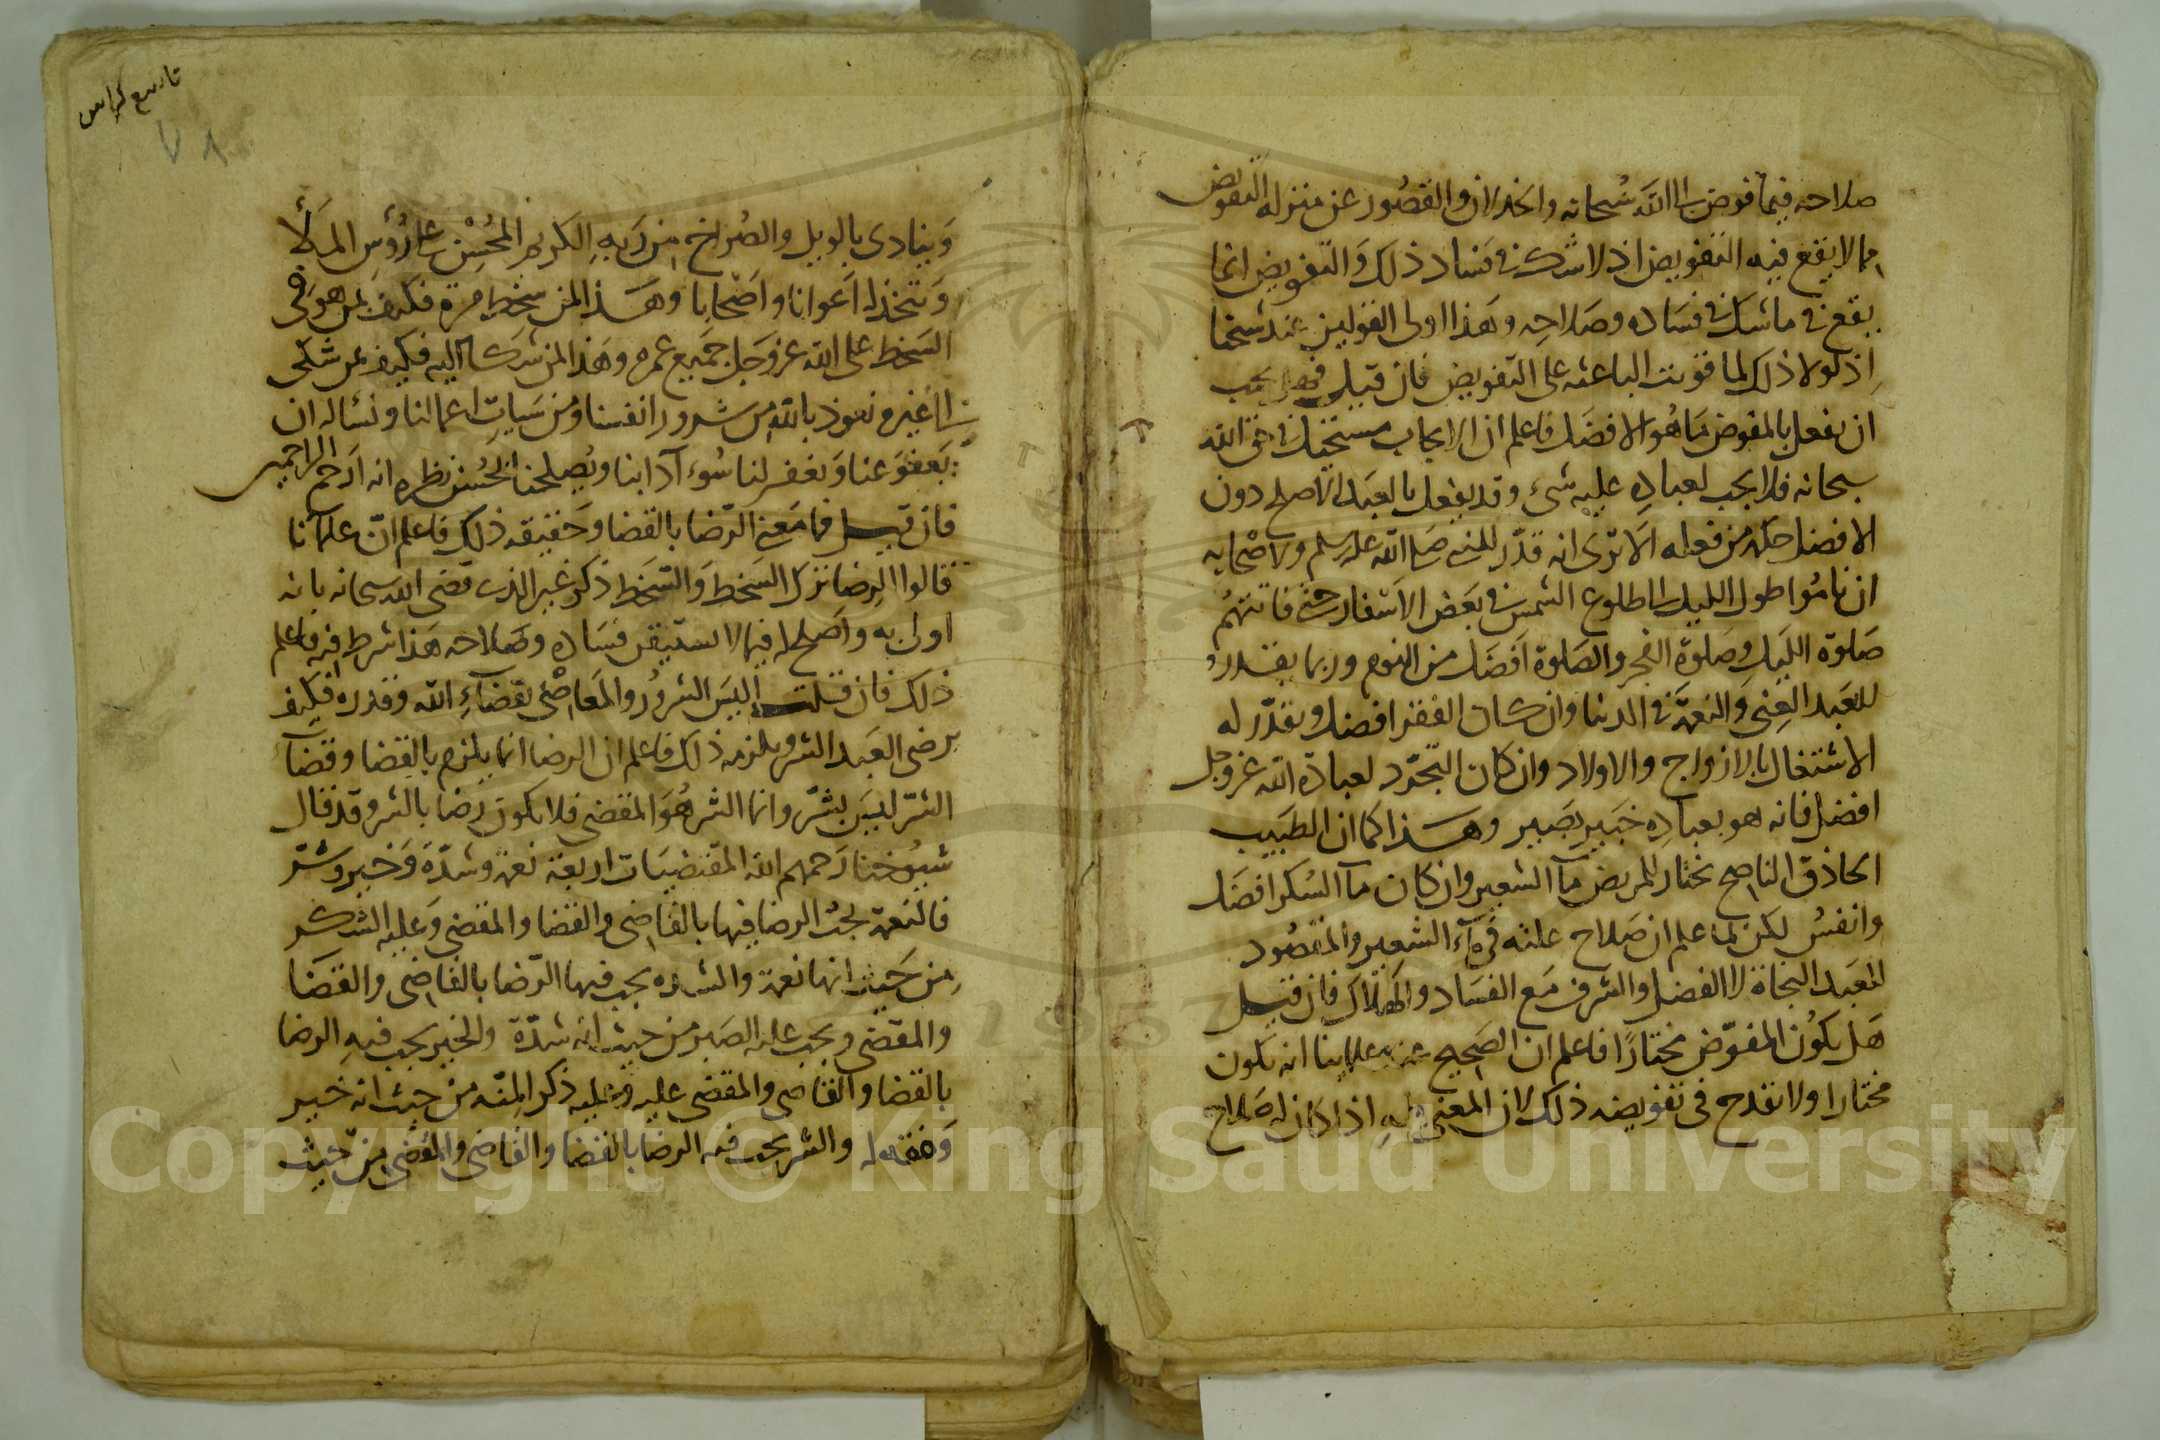 صلاحه فيما فوض الى الله سبحانه والخذلان والقصور عن منزله التفويض
مما لا يقع فيه التفويض اذ لا شك في فساد ذلك والتفويض انما
يقع في ما شك في فساده وصلاحه وهذا اولى القولين عند شيخنا
اذ لولا ذلك لما قويت الباعثه على التفويض فان قيل فهل يجب
ان يفعل بالمفوض ما هو الافضل فاعلم ان الايجاب مستحيل في حق الله
سبحانه فلا يجب لعباده عليه شيء وقد يفعل بالعبد الاصلح دون
الافضل حكمة من فعله الا ترى انه قدر للنبي صلى الله عليه وسلم ولاصحابه
ان ناموا طول الليل الى طلوع الشمس في بعض الاسفار حتى فاتتهم
صلوة الليل وصلوة الفجر والصلوة افضل من النوم وربما يقدر
للعبد الغنى والنعمة في الدنيا وان كان الفقر افضل ويقدر له
الاشتغال بالازواج والاولاد وان كان التجرد لعبادة الله عز وجل
افضل فانه هو بعباده خبير بصير وهذا كما ان الطبيب
الحاذق الناصح يختار للمريض مآ الشعير وان كان مآ السكر افضل
وانفس لكن لما علم ان صلاح علته في مآء الشعير والمقصود
للعبد النجاة لا الفضل والشرف مع الفساد والهلاك فان قيل
هل يكون المفوض مختارا فاعلم ان الصحيح عند علمائنا انه يكون
مختارا ولا تقدح في تفويضه ذلك لان المعنى فيه اذا كان له صلاح
تاسع كراس
٧٨
وينادى بالويل والصراخ من ربه الكريم المحسن على رؤس الملأ
ويتخذ له اعوانا واصحابا وهذا لمن سخط مرة فكيف لمن هو في
السخط على الله عز وجل جميع عمره وهذا لمن شكا اليه فكيف لمن شكى
الى غيره نعوذ بالله من شرور انفسنا ومن سيات اعمالنا ونسأله ان
يعفو عنا ويغفر لنا سوء آدابنا ويصلحنا بحسن نظره انه ارحم الراحمين
فان قيل فما معنى الرضا بالقضا وحقيقه ذلك فاعلم ان علمآنا
قالوا الرضا ترك السخط والسخط ذكر غير الذى قضى الله سبحانه بانه
اولى به واصلح له فيما لا يستيقن فساده وصلاحه هذا شرط فيه فاعلم
ذلك فان قلت اليس الشرور والمعاصي بقضآء الله وقدره فكيف
يرضى العبد الشر ويلزمه ذلك فاعلم ان الرضا انما يلزم بالقضا وقضآ
الشر ليس بشر وانما الشر هو المقضي فلا يكون رضا بالشر وقد قال
شيوخنا رحمهم الله المقضيات اربعة نعمة وشدة وخير وشر
فالنعمة يجب الرضا فيها بالقاضي والقضا والمقضي وعليه الشكر
من حيث انها نعمة والشده يجب فيها الرضا بالقاضي والقضا
والمقضي ويجب عليه الصبر من حيث انه شدة والخير يجب فيه الرضا
بالقضا والقاضي والمقضي عليه وعليه ذكر المنه من حيث انه خير
وفقه له والشر يجب فيه الرضا بالقضا والقاضي والمقضي من حيث
Copyright © King Saud University
1957